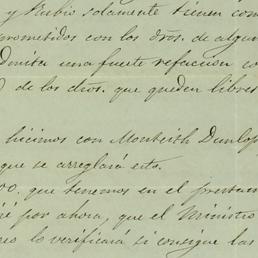 y Rubio solamente tienen com
prometidos con los dros. de algun
dmitir una fuerte refaccion co
de los dros. que queden libres
hicimos con Monteith Dunlop
que se arreglará esto.
00. que tenemos en el presen
é por ahora, que el Ministro
lo verificará si consigue las